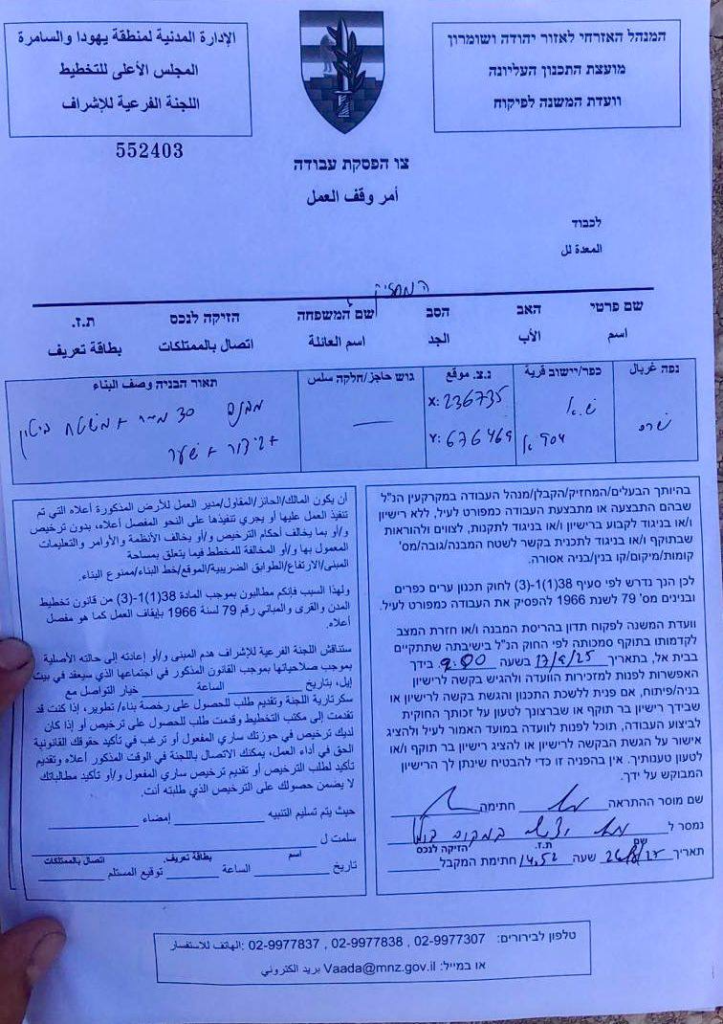 המנהל האזרחי לאזור יהודה ושומרון
מועצת התכנון העליונה
וועדת המשנה לפיקוח
الإدارة المدنية لمنطقة يهودا والسامرة
المجلس الأعلى للتخطيط
اللجنة الفرعية للإشراف
552403
צו הפסקת עבודה
أمر وقف العمل
לכבוד
המعدة لل
המחזיק
שם פרטי האב הסב שם המשפחה הזיקה לנכס ת.ז.
اسم الأب الجد اسم العائلة اتصال بالممتلكات بطاقة تعريف
נפה غربال כפר/יישוב قرية נ.צ. موقع גוש حاجز/חלקה سلس תאור הבניה وصف البناء
X: 236735
Y: 676469
בהיותך הבעלים/המחזיק/הקבלן/מנהל העבודה במקרקעין הנ"ל
שבהם התבצעה או מתבצעת העבודה כמפורט לעיל, ללא רישיון
ו/או בניגוד לקבוע ברישיון ו/או בניגוד לתקנות, לצווים ולהוראות
שבתוקף ו/או בניגוד לתכנית בקשר לשטח המבנה/גובה/מס'
קומות/מיקום/קו בנין/בניה אסורה.
לכן הנך נדרש לפי סעיף 38(1)(1-3) לחוק תכנון ערים כפרים
ובנינים מס' 79 לשנת 1966 להפסיק את העבודה כמפורט לעיל.
וועדת המשנה לפקוח תדון בהריסת המבנה ו/או חזרת המצב
לקדמותו בתוקף סמכותה לפי החוק הנ"ל בישיבתה שתתקיים
בבית אל, בתאריך 17/9/25 בשעה 9:00 בידך
האפשרות לפנות למזכירות הוועדה ולהגיש בקשה לרישיון
בניה/פיתוח, אם פנית ללשכת התכנון והגשת בקשה לרישיון או
שבידך רישיון בר תוקף או שברצונך לטעון על זכותך החוקית
לביצוע העבודה, תוכל לפנות לוועדה במועד האמור לעיל ולהציג
אישור על הגשת הבקשה לרישיון או להציג רישיון בר תוקף ו/או
לטעון טענותיך. אין בהפניה זו כדי להבטיח שינתן לך הרישיון
המבוקש על ידך.
שם מוסר ההתראה חתימה
נמסר ל
שם ת.ז. הזיקה לנכס
תאריך 26/8/25 שעה 14:52 חתימת המקבל
أن يكون المالك/الحائز/المقاول/مدير العمل للأرض المذكورة أعلاه التي تم
تنفيذ العمل عليها أو يجري تنفيذها على النحو المفصل أعلاه، بدون ترخيص
و/أو بما يخالف أحكام الترخيص و/أو يخالف الأنظمة والأوامر والتعليمات
المعمول بها و/أو المخالفة للمخطط فيما يتعلق بمساحة
المبنى/الارتفاع/الطوابق الضريبية/الموقع/خط البناء/ممنوع البناء.
ولهذا السبب فإنكم مطالبون بموجب المادة 38(1)(1-3) من قانون تخطيط
المدن والقرى والمباني رقم 79 لسنة 1966 بإيقاف العمل كما هو مفصل
أعلاه.
ستناقش اللجنة الفرعية للإشراف هدم المبنى و/أو إعادته إلى حالته الأصلية
بموجب صلاحياتها بموجب القانون المذكور في اجتماعها الذي سيعقد في بيت
إيل، بتاريخ الساعة خيار التواصل مع
سكرتارية اللجنة وتقديم طلب للحصول على رخصة بناء/ تطوير، إذا كنت قد
تقدمت إلى مكتب التخطيط وقدمت طلب للحصول على ترخيص أو إذا كان
لديك ترخيص في حوزتك ساري المفعول أو ترغب في تأكيد حقوقك القانونية
الحق في أداء العمل، يمكنك الاتصال باللجنة في الوقت المذكور أعلاه وتقديم
تأكيد لطلب الترخيص أو تقديم ترخيص ساري المفعول و/أو تأكيد مطالباتك
لا يضمن حصولك على الترخيص الذي طلبته أنت.
حيث يتم تسليم التنبيه إمضاء
سلمت ل
اسم بطاقة تعريف. اتصال بالممتلكات
تاريخ الساعة توقيع المستلم
טלפון לבירורים: 02-9977307 , 02-9977838 , 02-9977837 :الهاتف للاستفسار
או במייל: Vaada@mnz.gov.il بريد الكتروني